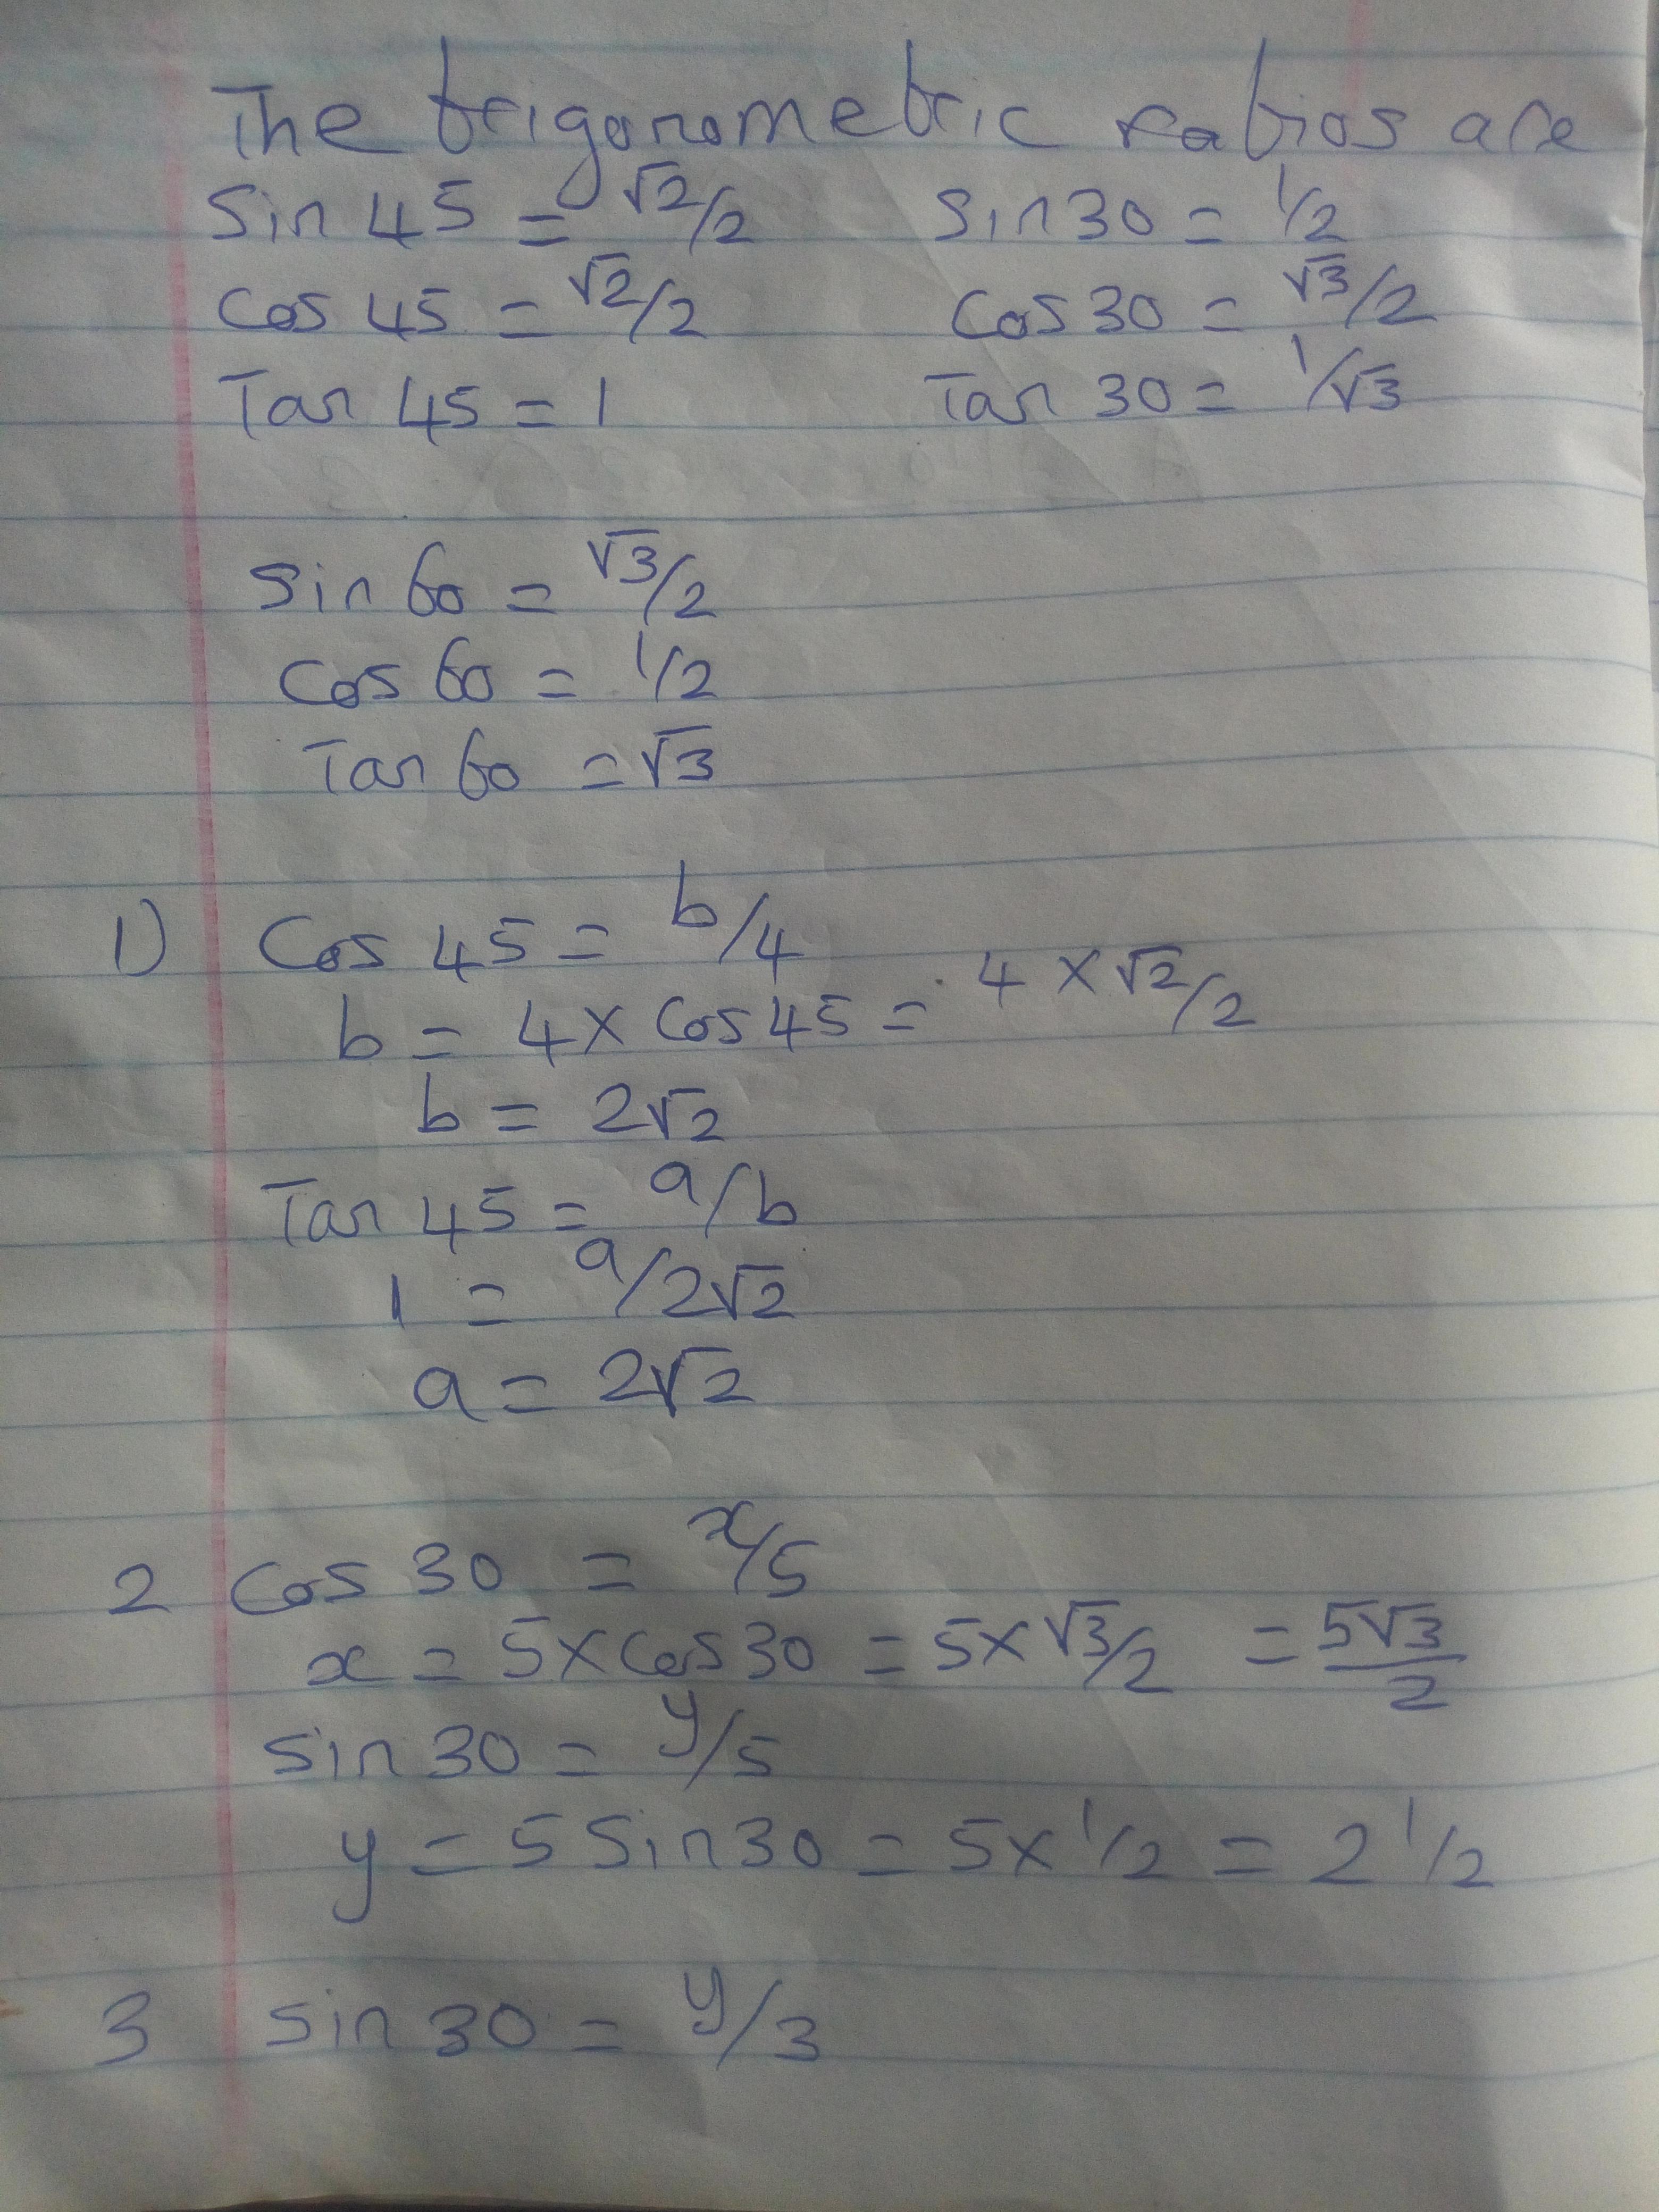 The trigonometric ratios are
Sin 45 = √2/2 Sin 30 = 1/2
Cos 45 = √2/2 Cos 30 = √3/2
Tan 45 = 1 Tan 30 = 1/√3
Sin 60 = √3/2
Cos 60 = 1/2
Tan 60 = √3
1) Cos 45 = b/4
b = 4 × Cos 45 = 4 × √2/2
b = 2√2
Tan 45 = a/b
1 = a/2√2
a = 2√2
2 Cos 30 = x/5
x = 5 × Cos 30 = 5 × √3/2 = 5√3/2
Sin 30 = y/5
y = 5 Sin 30 = 5 × 1/2 = 2 1/2
3 Sin 30 = y/3